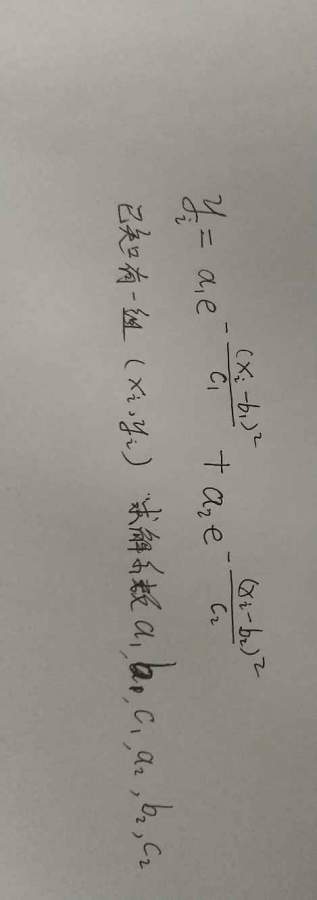 y_i = a_1 e^{-\frac{(x_i-b_1)^2}{c_1}} + a_2 e^{-\frac{(x_i-b_2)^2}{c_2}}
已知有一组 (x_i, y_i) 求解系数 a_1, b_1, c_1, a_2, b_2, c_2